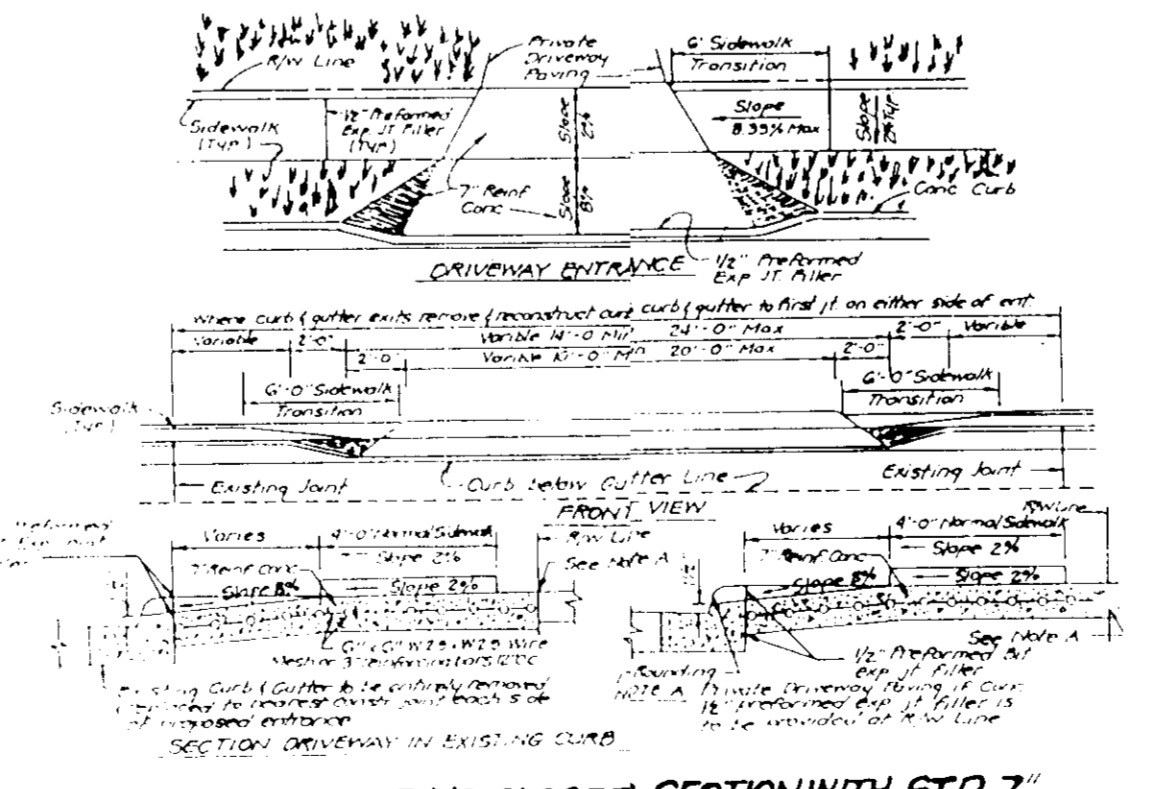 Private
Driveway
Paving
6' Sidewalk
Transition
R/W Line
Sidewalk
(Typ.)
1/2" Preformed
Exp. JT. Filler
(Typ)
Slope
2%
Slope
8.33% Max
Slope
2% Typ
7" Reinf
Conc
Slope
8%
Conc Curb
DRIVEWAY ENTRANCE
1/2" Preformed
Exp JT. Filler
Where curb & gutter exits remove & reconstruct curb & gutter to first jt. on either side of ent.
Variable
2'-0"
Varible 14'-0 Min
24'-0" Max
2'-0"
Varible
2'-0"
Varible 10'-0" Min
20'-0" Max
2'-0"
6'-0" Sidewalk
Transition
6'-0" Sidewalk
Transition
Sidewalk
(Typ.)
Existing Joint
Curb below Gutter Line
Existing Joint
FRONT VIEW
Preformed
Varies
4'-0" Normal Sidewalk
Slope 2%
R/W Line
See Note A
7" Reinf Conc
Slope 8%
Slope 2%
6"x6" W2.9xW2.9 Wire
Mesh or 3" reinforcing bars 12" OC
Existing Curb & Gutter to be entirely removed
replaced to nearest constr joint each side
of proposed entrance
SECTION DRIVEWAY IN EXISTING CURB
R/W Line
Varies
4'-0" Normal Sidewalk
7" Reinf Conc
Slope 2%
Slope 8%
Slope 2%
See Note A
1/2" Preformed Bit
exp jt filler
Rounding
NOTE A Private Driveway Paving if Conc.
1/2" preformed exp. jt. filler is
to be provided at R/W Line
SECTION WITH STD 7"